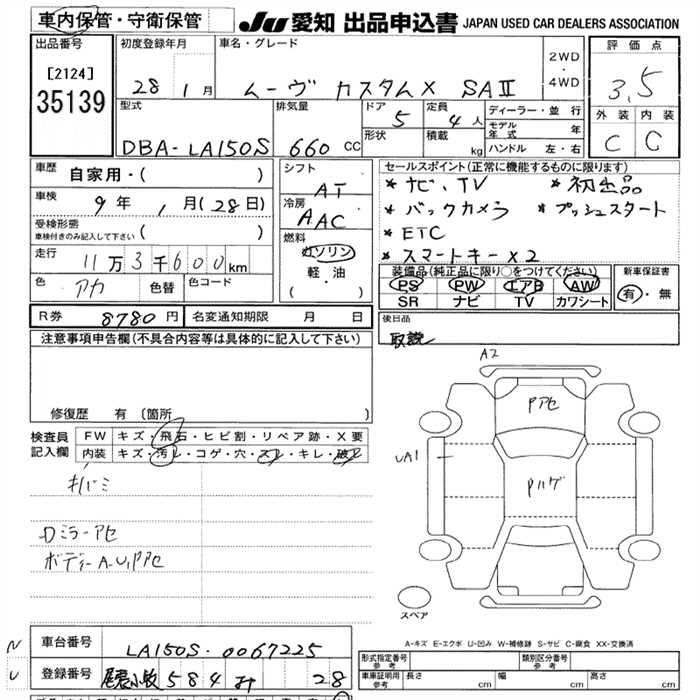 車内保管・守衛保管
JU 愛知 出品申込書 JAPAN USED CAR DEALERS ASSOCIATION
出品番号
[2124]
35139
初度登録年月
28 年 1 月
車名・グレード
ムーヴ カスタムX SAⅡ
2WD
・
4WD
評価点
3.5
外装 内装
C C
型式
DBA-LA150S
排気量
660 CC
ドア
5
形状
定員
4 人
積載
kg
ディーラー・並行
モデル年式 年
ハンドル 左・右
車歴
自家用・( )
車検
9 年 1 月(28 日)
受検形態
車検付きのみ記入して下さい ( )
走行
11 万 3 千 600 km
色 アカ 色替 色コード
シフト
AT
冷房
AAC
燃料
ガソリン
軽・油
( ・ )
セールスポイント(正常に機能するものに限ります)
* ナビ、TV * 初出品
* バックカメラ * プッシュスタート
* ETC
* スマートキー×2
装備品(純正品に限り○をつけてください)
PS PW エアB AW
SR ナビ TV カワシート
新車保証書
有・無
R券 8780 円 名変通知期限 月 日
後日品
取説
注意事項申告欄(不具合内容等は具体的に記入して下さい)
修復歴 有 (箇所 )
検査員記入欄
FW キズ・飛石・ヒビ割・リペア跡・X要
内装 キズ・汚レ・コゲ・穴・スレ・キレ・破レ
キバミ
Dミラーアセ
ボディーA-U,Pアセ
A2
Pアセ
UA1
Pハゲ
スペア
A-キズ E-エクボ U-凹み W-補修跡 S-サビ C-腐食 XX-交換済
N
U
車台番号 LA150S-0067225
登録番号 尾張小牧 584 28
形式指定番号 参考
類別区分番号 参考
車庫証明用 参考 長さ cm 幅 cm 高さ cm